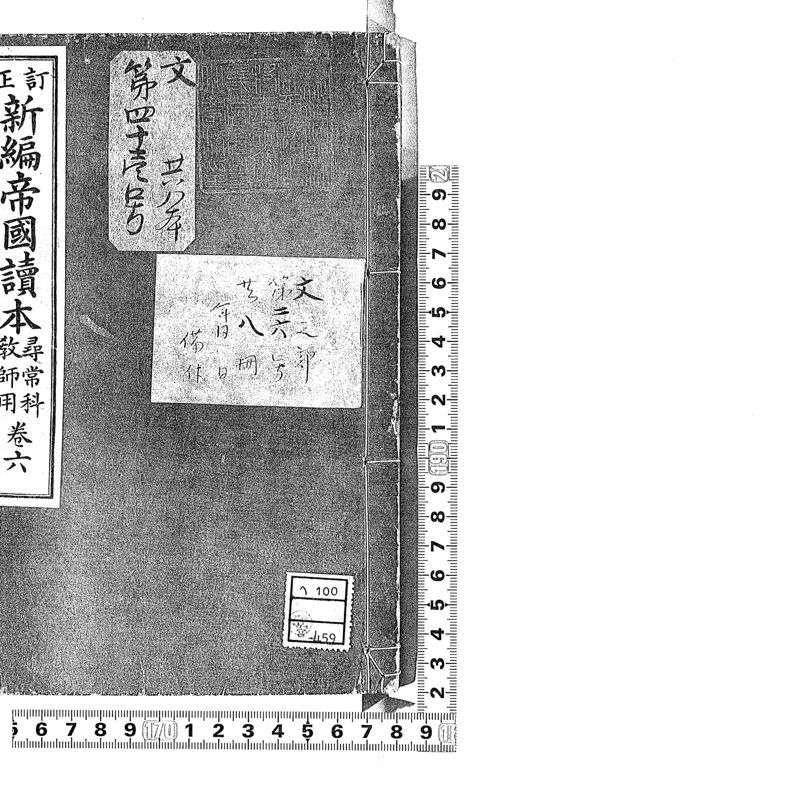 訂正
新編帝國讀本
尋常科
教師用
卷六
文
共八本
第四十壱号
文之部
第二六号
共八冊
年月日
備付
へ100
459
9
8
7
6
5
4
3
2
1
160
9
8
7
6
5
4
3
2
6 7 8 9 170 1 2 3 4 5 6 7 8 9